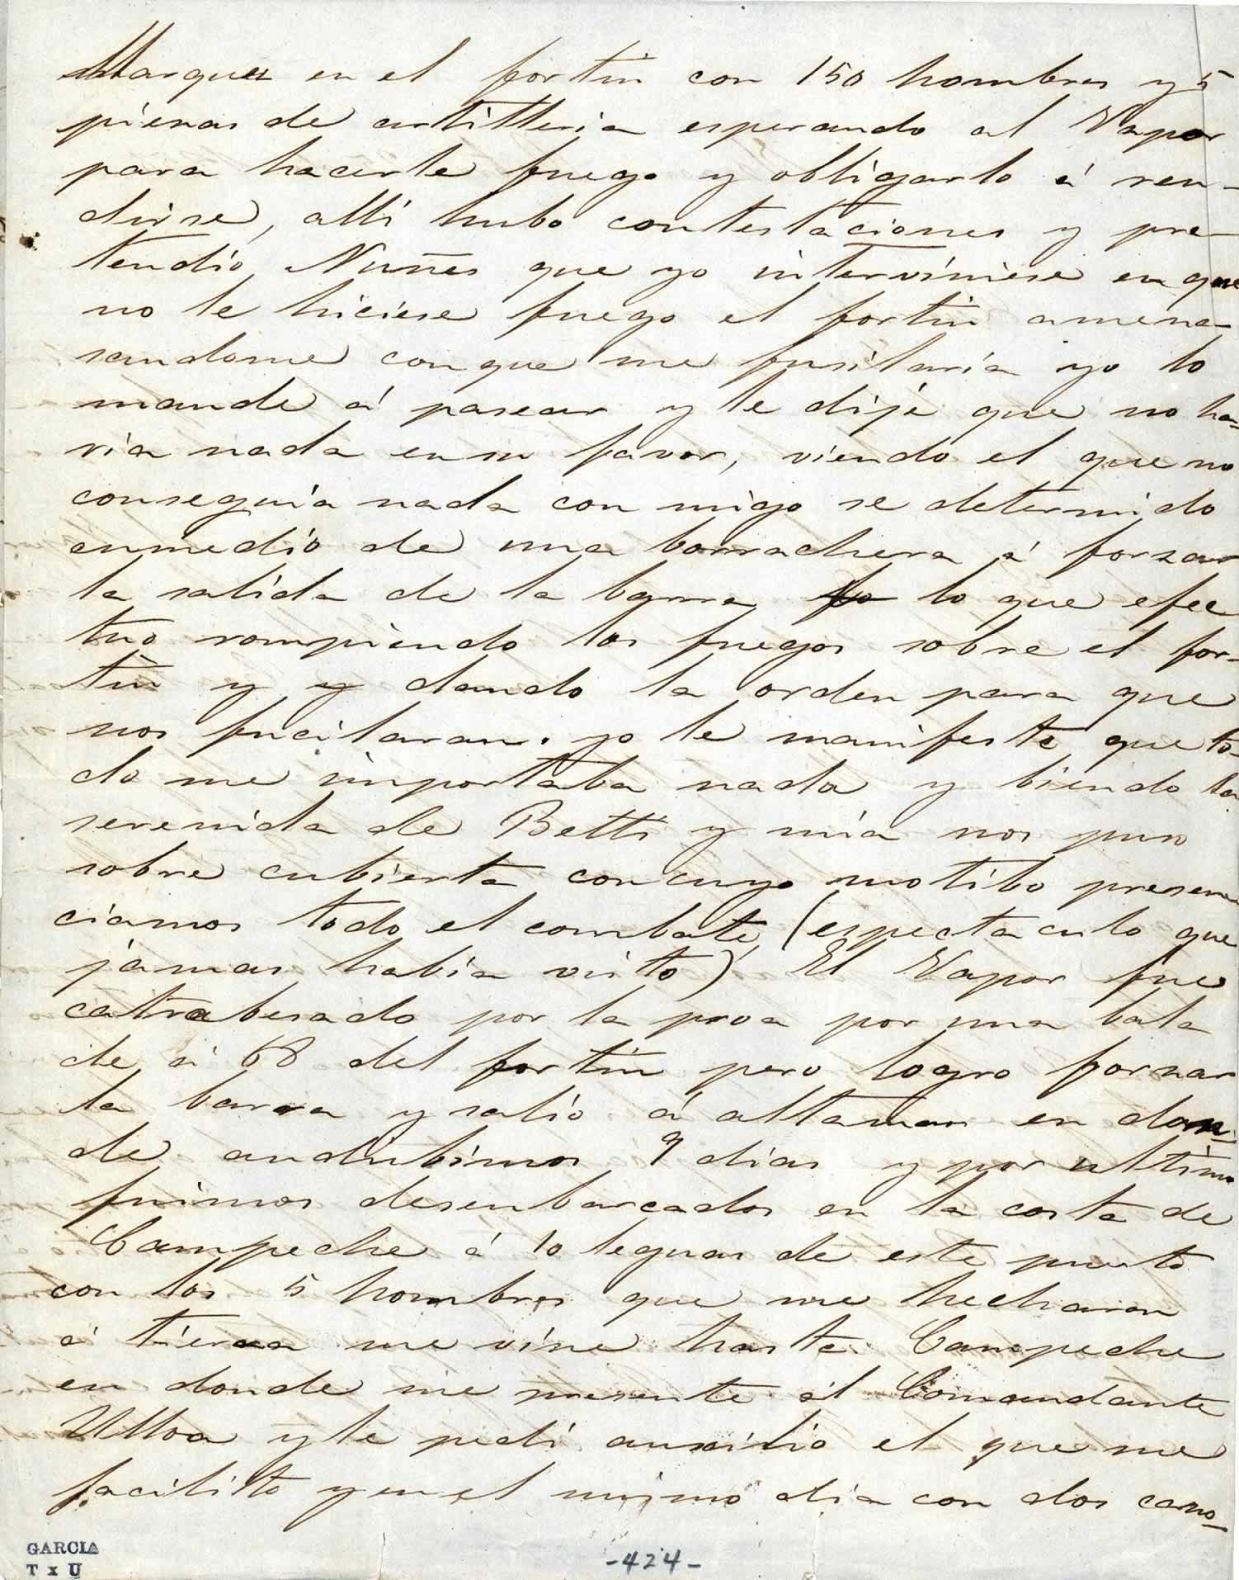 Marquez en el fortin con 150 hombres y 5
piezas de artilleria esperando al Vapor
para hacerle fuego y obligarlo á ren-
dirse, alli hubo contestaciones y pre-
tendio Nuñes que yo interviniese en que
no le hiciese fuego el fortin amena-
sandome con que me fusilaria yo lo
mande á pasear y le dije que no ha-
ria nada en su favor, viendo el que no
conseguia nada con migo se determido
enmedio de una borrachera á forzar
la salida de la barra lo que efec
tuo rompiendo los fuegos sobre el for-
tin y y dando la orden para que
nos fucilaran. yo le manifeste que to-
do me importaba nada y biendo la
serenida de Betti y mia nos puso
sobre cubierta con cuyo motibo presen
ciamos todo el combate, (espectaculo que
jámas habia visto) El Vapor fue
atrabesado por la proa por una bala
de á 68 del fortin pero logro forzar
la barra y salio á altamar en don-
de andubimos 9 dias y por ultimo
fuimos desenbarcados en la costa de
Campeche á 10 leguas de este puerto
con los 5 hombres que me hecharon
á tierra me vine hasta Campeche
en donde me presente al Comandante
Ulloa y le pedi auxilio el que me
facilito y en el mismo dia con dos cano-
GARCIA
T x U
-424-